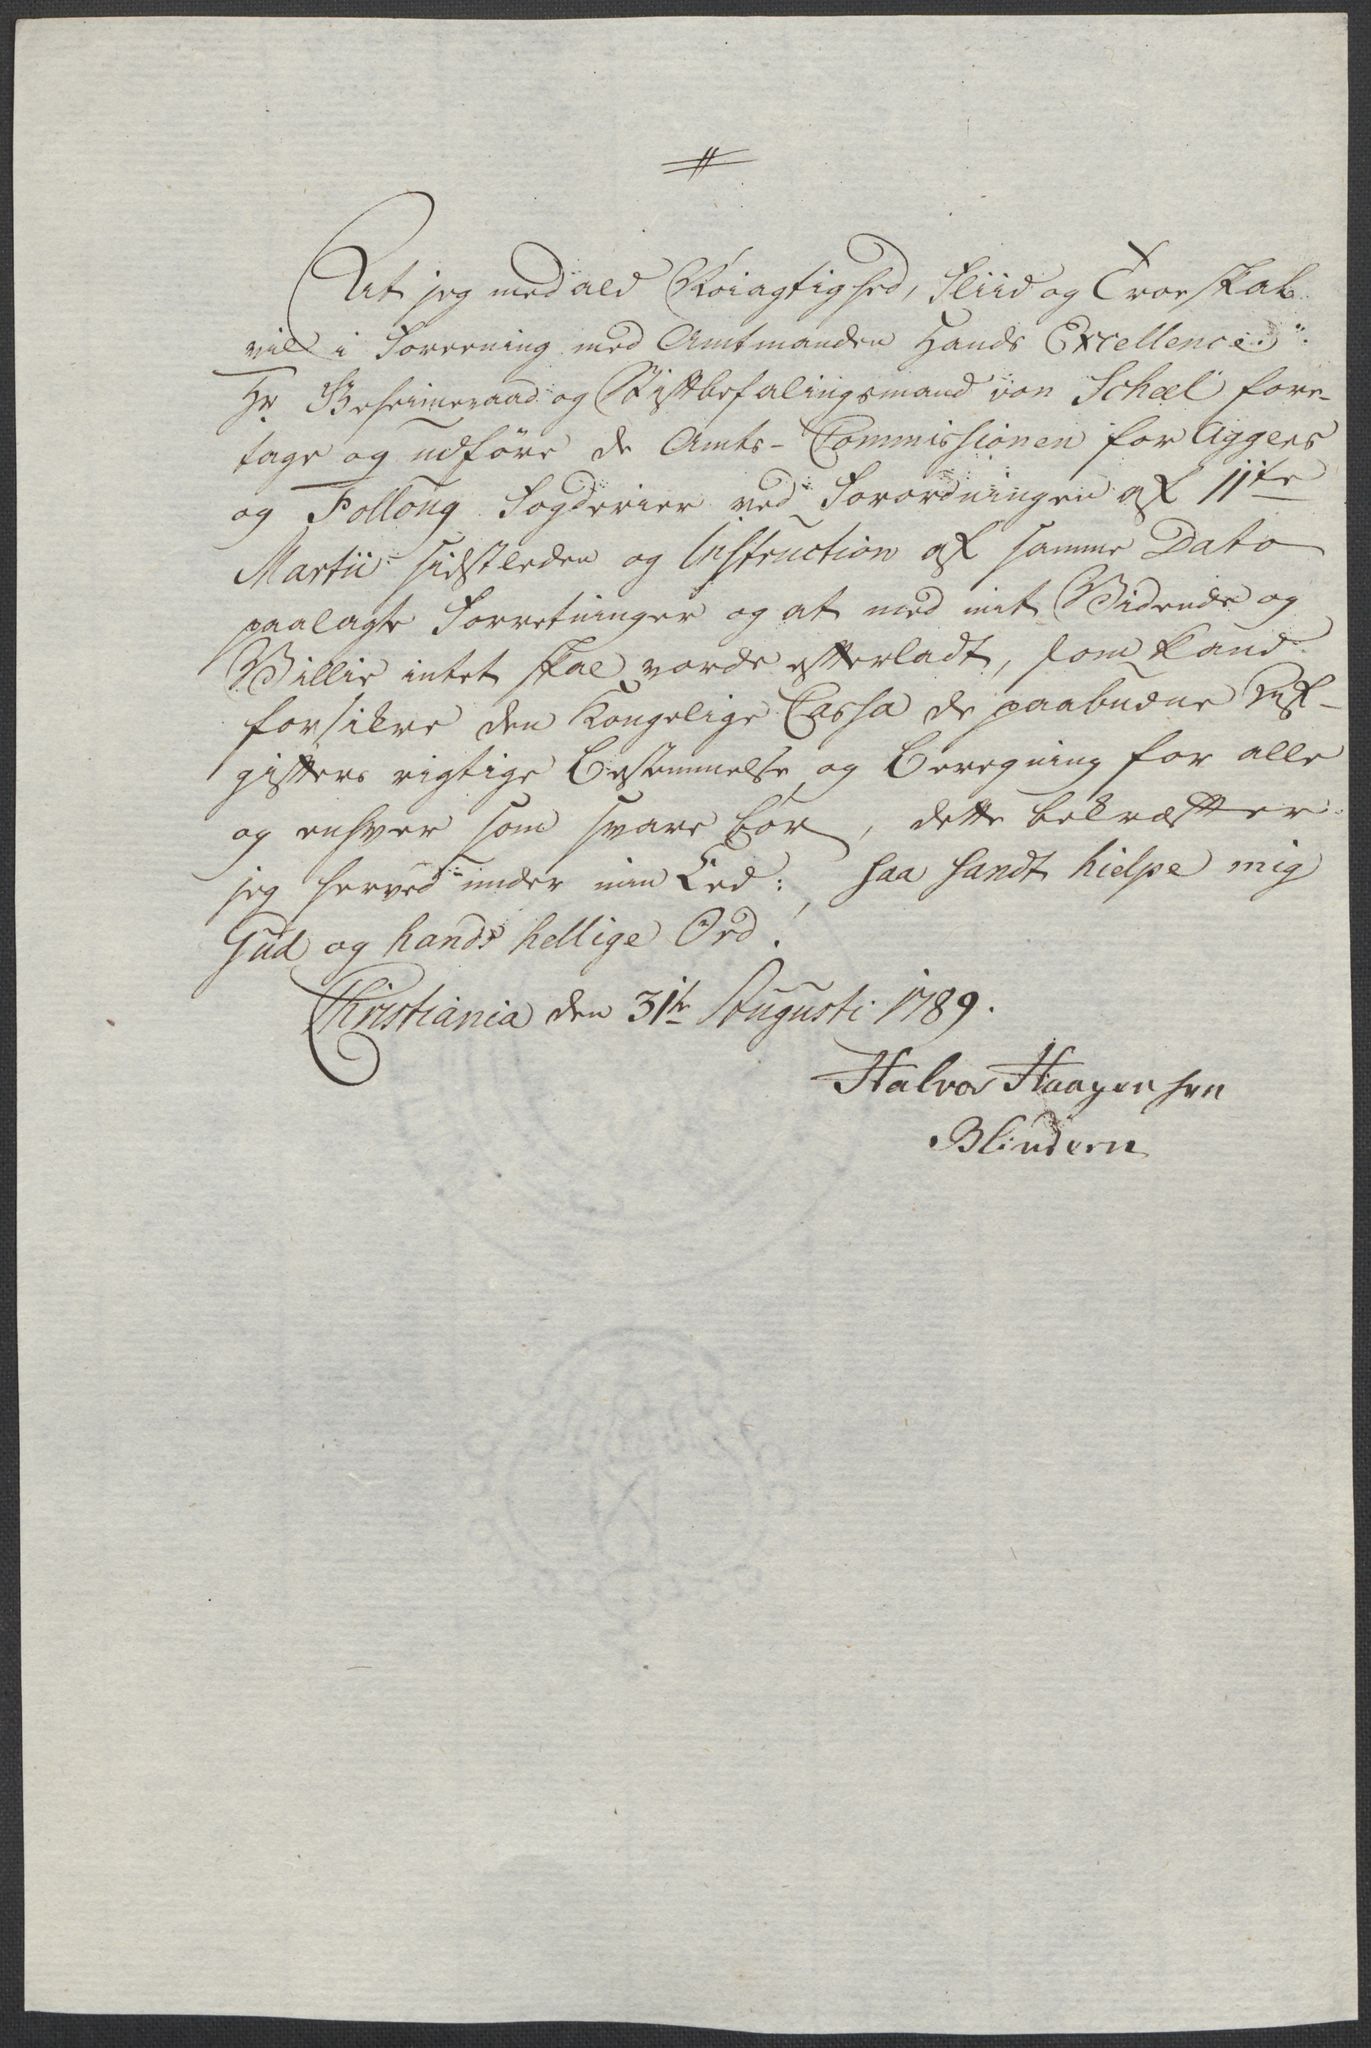 At jeg med ald Nöiagtighed, Fliid og Troeskab
vil i Foreening med Amtmanden Hands Excellence
Hr Geheimeraad og Stiftbefalingsmand von Scheel fore-
tage og udföre de Amts-Commissionen for Aggers
og Folloug Fogderier ved Forordningen af 11te
Martii sidstleden og Instruction af samme Dato
paalagte Forretninger og at med mit Vidende og
Villie intet skal vorde efterladt, som kand
forsikre den Kongelige Cassa de paabudne Af-
gifters rigtige Bestemmelse og Beregning for alle
og enhver som svare bör, dette bekræfter
jeg herved under min Eed: saa sandt hielpe mig
Gud og hands hellige Ord!
Christiania den 31te Augusti 1789.
Halvor Haagensen
Blindern